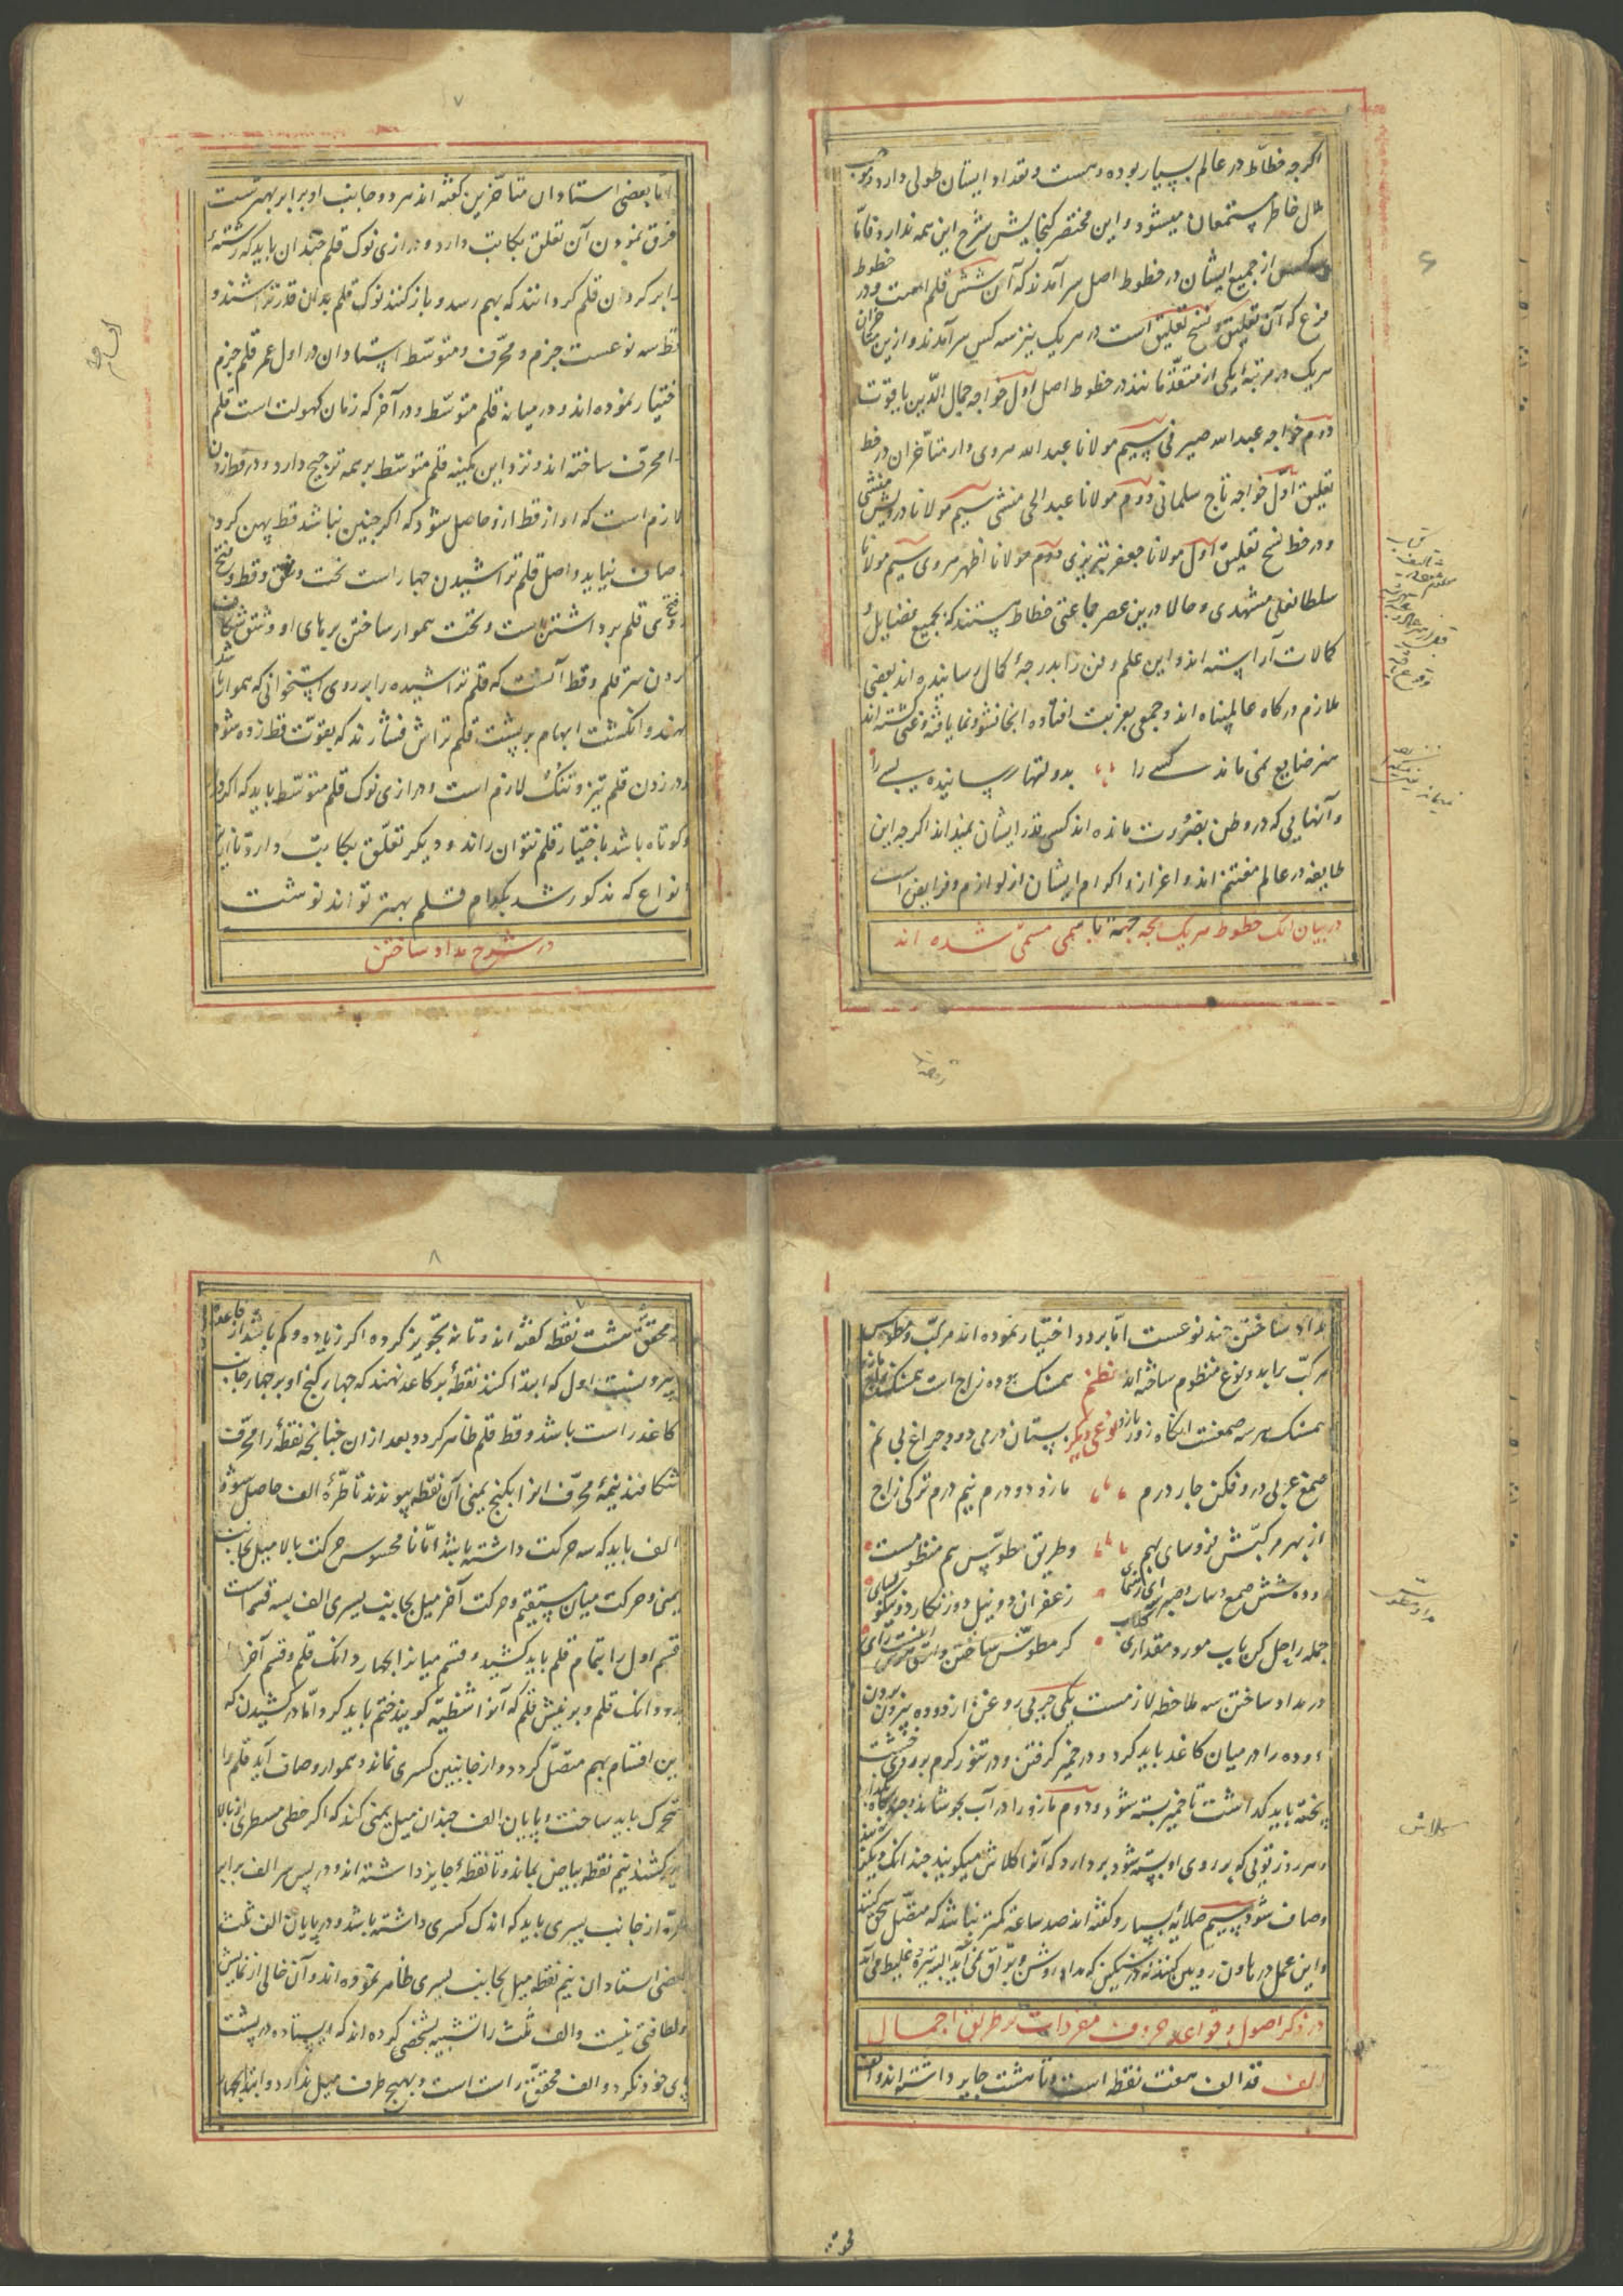 اکرچه خطاط در عالم بسیار بوده و هست و تعداد ایشان طولی دارد و موجب
ملال خاطر مستمعان میشود و این مختصر کنجایش شرح این همه ندارد فامّا
کس از جمیع ایشان در خطوط اصل سرآمدند که آن شش قلم است و در خطوط
فرع که آن تعلیق و نسخ تعلیق است در هریک نیز سه کس سرآمدند و ازین متأخران
هریک در مرتبه ایکی از متقدّمانند در خطوط اصل اول خواجه جمال الدّین یاقوت
دوم خواجه عبدالله صیرفی سیم مولانا عبدالله هروی و از متأخران در خط
تعلیق اوّل خواجه تاج سلمانی دووم مولانا عبدالحی منشی سیم مولانا درویش منشی
و در خط نسخ تعلیق اول مولانا جعفر تبریزی دووم مولانا اظهر هروی سیم مولانا
سلطانعلی مشهدی و حالا درین عصر جماعتی خطاط هستند که بجمیع فضایل و
کمالات آراسته اند و این علم و فن را بدرجهٔ کمال رسانیده اند بعضی
ملازم درکاه عالمپناه اند و جمعی بغربت افتاده انجا نشو و نما یافته و غنی کشته اند
هنر ضایع نمی ماند کسی را بدولتها رسانیده بسی را
و آنهایی که در وطن بضرورت مانده اند کسی قدر ایشان نمیداند اکرچه این
طایفه در عالم مغتنم اند و اعزاز و اکرام ایشان از لوازم و فرایض است
در بیان انک خطوط هریک بچه جهة باسمی مسمّی شده اند
۷
امّا بعضی استادان متأخّرین کفته اند هر دو جانب او برابر بهترست
فرق نمودن آن تعلق بکاتب دارد و درازی نوک قلم چندان باید که رشتهٔ
را بر کردن قلم کردانند که بهم رسد و باز کنند نوک قلم بدان قدر تراشند و
قط سه نوعست جزم و محرّف و متوسّط استادان در اول عمر قلم جزم
اختیار نموده اند و در میانه قلم متوسّط و در آخر که زمان کهولت است قلم
را محرّف ساخته اند و نزد این کمینه قلم متوسّط بر همه ترجیح دارد و در قط زدن
لازم است که آواز قط ازو حاصل شود که اکر چنین نباشد قط پهن کردد
صاف نیاید و اصل قلم تراشیدن چهار است نحت و شق و قط و فتح
و فتح کی قلم برداشتن است و نحت هموار ساختن برهای او و شق شکاف
کردن سر قلم و قط آنست که قلم تراشیده را بر روی استخوانی که هموار باشد
نهند و انکشت ابهام بر پشت قلم تراش فشارند که بقوّت قط زده شود
و در زدن قلم تیز و تنک لازم است و درازی نوک قلم متوسّط باید که اکر دراز
و کوتاه باشد باختیار قلم نتوان راند و دیکر تعلّق بکاتب دارد تا ازین
انواع که مذکور شد بکدام قلم بهتر تواند نوشت
در شرح مداد ساختن
مداد ساختن چند نوعست امّا بر دو اختیار نموده اند مرکّب و مطوّس
مرکّب باید و نوع منظوم ساخته اند نظم همسنک دوده زاج است همسنک هر دو مازو
همسنک هر سه صمغست انکاه زور بازو نوعی دیکر بستان درمی دود چراغ بی نم
صمغ عربی درو فکن چار درم مازو دو درم نیم درم ترکی زاج
از بهر مرکّبش فروسای بهم و طریق مطوّس هم منظومست
دوده شش صمغ زعفران دو نیل دو زنکار دو
جمله را حل کن بآب مورد و مقداری کلاب کر مطوّس ساختن
در مداد ساختن سه ملاحظه لازمست یکی چربی روغن از دوده بیرون بردن
دوده را در میان کاغذ باید کرد و در خمیر کرفتن و در تنور کرم بر روی خشت
پخته باید کذاشت تا خمیر بسته شود و دووم مازو را در آب بجوشانند
و هر روز تویی که بر روی او بسته شود بردارد که آنرا کلاش میکویند چندانک
و صاف شود سیم صلایهٔ بسیار و کفته اند صد ساعة کمتر نباشد که متصّل سحق کنند
و این عمل در هاون رویین کنند نه در سنکین که مداد روشن و برّاق نمی آید البه تیره و غلیظ می آید
در ذکر اصول و قواعد حروف مفردات بر طریق اجمال
الف قد الف هفت نقطه است و تا هشت جایز داشته اند و الف
۸
محقق هشت نقطه کفته اند و تا نه تجویز کرده اکر زیاده و کم باشد از قاعده
بیرونست اول که ابتدا کنند نقطهٔ بر کاغذ نهند که چهار کنج او بر چهار جانب
کاغذ راست باشد و قط قلم ظاهر کردد بعد از ان چنانچه نقطه را محرّف
شکافند نیمهٔ محرّف انرا بکنج یمنی آن نقطه پیوندند تا طرّهٔ الف حاصل شود و
الف باید که سه حرکت داشته باشد امّا نا محسوس حرکت بالا میل بجانب
یمنی و حرکت میان مستقیم و حرکت آخر میل بجانب یسری الف بسه قسم است
قسم اول را بتمام قلم باید کشید و قسم میانرا بچهار دانک قلم و قسم آخر
بدو دانک قلم و بر نیش قلم که آنرا شظیّه کویند ختم باید کرد و امّا در کشیدن که
این اقسام بهم متصّل کردد و از جانبین کسری نماند و هموار و صاف آید قلم را
متحرک باید ساخت و پایان الف چندان میل یمنی کند که اکر خطی مسطری از بالا
بزیر کشند نیم نقطه بیاض بماند و تا نقطهٔ جایز داشته اند و در پس سر الف برابر
طرّه از جانب یسری باید که اندک کسری داشته باشد و در پایان الف ثلث
بعضی استادان نیم نقطه میل بجانب یسری ظاهر نموده اند و آن خالی از نمایش
و لطافتی نیست و الف ثلث را تشبیه بشخصی کرده اند که ایستاده در پشت
پای خود نکرد و الف محقّق راست است و بهیچ طرف میل ندارد و ابتدا بچهار